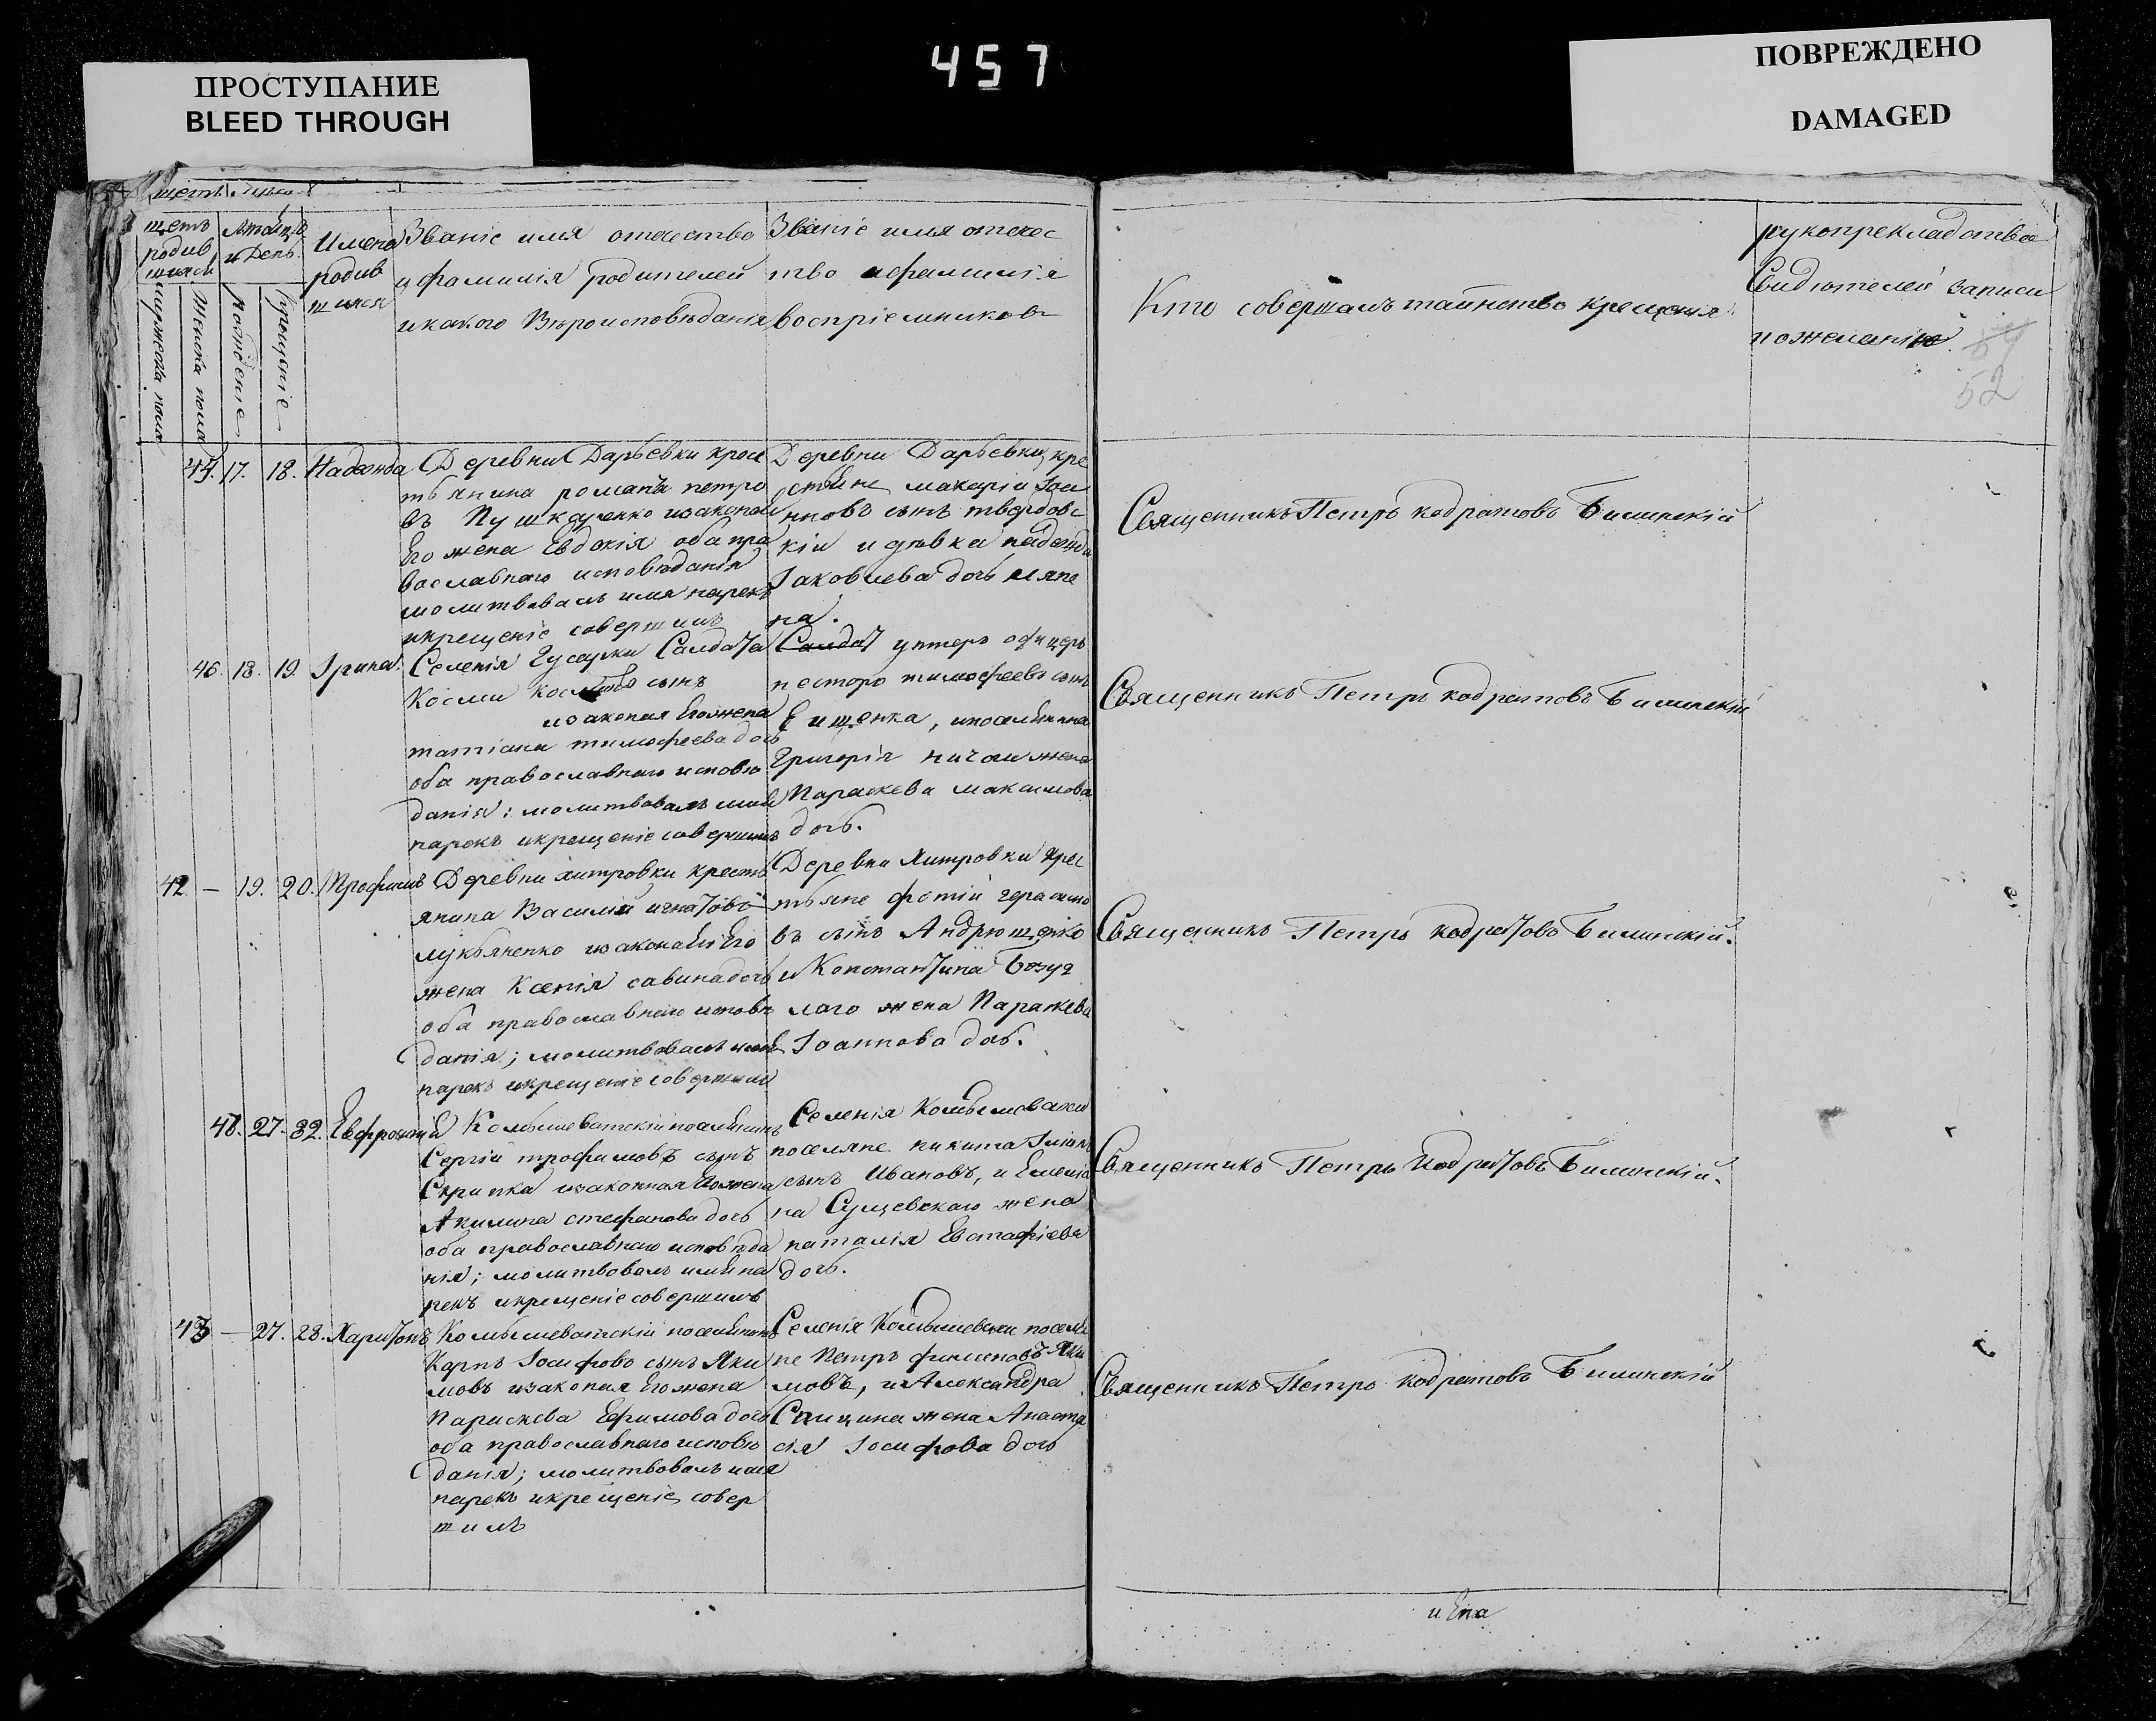 457
ПРОСТУПАНИЕ
BLEED THROUGH
ПОВРЕЖДЕНО
DAMAGED
щетъ
родив
шихся
мужеска пола
Женска пола
и День
Рождение
Крещеніе
Имена
родив
шихся
Званіе имя отечество
и фамилія родителей
и какого Вѣроисповѣданія
Званіе имя отечес
тво и фамилія
воспріемниковъ
Кто совершалъ таинство крещенія
рукоприкладство
Свидѣтелей записи
по желанію
52
17. 18. Надежда
Деревни Дарьевки крес
тьянина романа петро
въ Пушкаренко изаконая
Его жена Евдокія оба пра
вославнаго исповѣданія
молитвовалъ имя нарекъ
икрещеніе совершилъ
Деревни Дарьевки, кре
стьяне макарій Іоа
нновъ сынъ твердовс
кіи и дѣвка надежда
Іаковлева дочь
на.
Священникъ Петръ кодратовъ Билинскій
46. 18. 19. Ірина.
Селенія Гусарки Салдата
Косми сынъ
изаконая Егожена
татіана тимофеева дочь
оба православнаго исповѣ
данія: молитвовалъ имя
нарекъ икрещеніе совершилъ
Салдат унтеръ офицеръ
несторъ тимофеевъ сынъ
Енщенка, ипоселянина
Григорія жена
Параскева максимова
дочь.
Священникъ Петръ кодратовъ Билинскій
42 — 19. 20. Трофимъ
Деревни хитровки кресть
янина Василій игнатовъ
лукьяненко изаконая Его
жена Ксенія савина дочь
оба православнаго исповѣ
данія; молитвовалъ имя
нарекъ икрещеніе совершилъ
Деревни Хитровки крес
тьяне фотій герасимо
въ сынъ Андрющенко
и Константина
лаго жена Параскева
Іоаннова дочь.
Священникъ Петръ кодратовъ Билинскій.
48. 27. Евфросинія
Комышеватскій поселянинъ
Сергій трофимовъ сынъ
Скрипка изаконная Его жена
Акилина стефанова дочь
оба православнаго исповѣда
нія; молитвовалъ имя на
рекъ икрещеніе совершилъ
Селенія Комышеваки
поселяне никита
сынъ Ивановъ, и Емелія
на Сущевскаго жена
наталія Евстафіева
дочь.
Священникъ Петръ Кодратовъ Билинскій.
43 — 27. 28. Харитонъ
Комышеватскій поселянинъ
Карпъ Іосифовъ сынъ Яки
мовъ изаконая Егожена
Параскева Ефимова дочь
оба православнаго исповѣ
данія; молитвовалъ имя
нарекъ икрещеніе совер
шилъ
Селенія Комышеваки поселя
не Петръ филиповъ Яки
мовъ, и Александра
Спицина жена Анаста
сія Іосифова дочь
Священникъ Петръ кодратовъ Билинскій